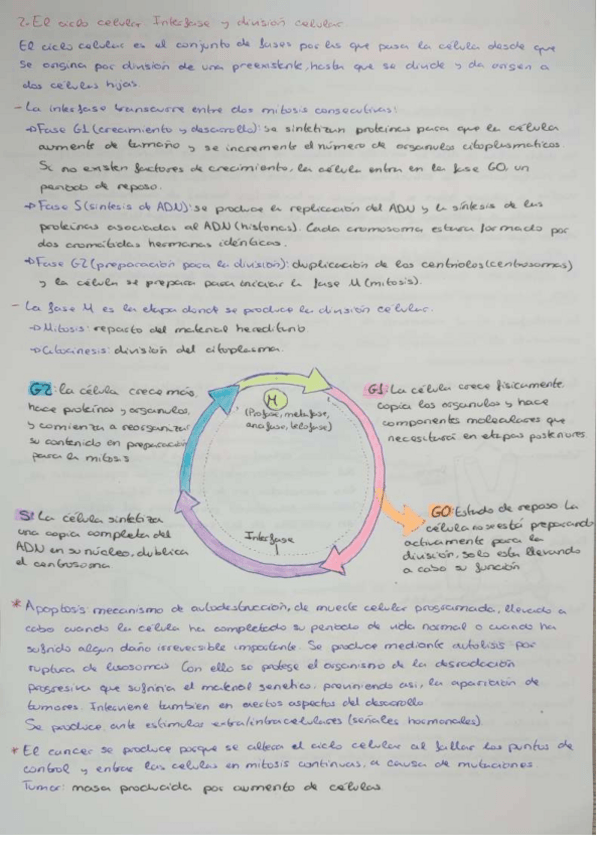 2. El ciclo celular. Interfase y división celular.
El ciclo celular es el conjunto de fases por las que pasa la célula desde que
se origina por división de una preexistente, hasta que se divide y da origen a
dos células hijas.
- La interfase transcurre entre dos mitosis consecutivas:
→ Fase G1 (crecimiento y desarrollo): se sintetizan proteínas para que la célula
aumente de tamaño y se incremente el número de orgánulos citoplasmáticos.
Si no existen factores de crecimiento, la célula entra en la fase G0, un
periodo de reposo.
→ Fase S (síntesis de ADN): se produce la replicación del ADN y la síntesis de las
proteínas asociadas al ADN (histonas). Cada cromosoma estará formado por
dos cromátidas hermanas idénticas.
→ Fase G2 (preparación para la división): duplicación de los centriolos (centrosomas)
y la célula se prepara para iniciar la fase M (mitosis).
- La fase M es la etapa donde se produce la división celular.
→ Mitosis: reparto del material hereditario.
→ Citocinesis: división del citoplasma.
G2: la célula crece más,
hace proteínas y orgánulos,
y comienza a reorganizar
su contenido en preparación
para la mitosis
M
(Profase, metafase,
anafase, telofase)
G1: La célula crece físicamente,
copia los orgánulos y hace
componentes moleculares que
necesitará en etapas posteriores
S: La célula sintetiza
una copia completa del
ADN en su núcleo, dublica
el centrosoma
Interfase
G0: Estado de reposo. La
célula no se está preparando
activamente para la
división, solo está llevando
a cabo su función
* Apoptosis: mecanismo de autodestrucción, de muerte celular programada, llevado a
cabo cuando la célula ha completado su periodo de vida normal o cuando ha
sufrido algún daño irreversible importante. Se produce mediante autolisis por
ruptura de lisosomas. Con ello se protege el organismo de la degradación
progresiva que sufriría el material genético, previniendo así, la aparición de
tumores. Interviene también en ciertos aspectos del desarrollo.
Se produce ante estímulos extra/intracelulares (señales hormonales)
* El cáncer se produce porque se altera el ciclo celular al fallar los puntos de
control y entrar las células en mitosis continuas, a causa de mutaciones.
Tumor: masa producida por aumento de células